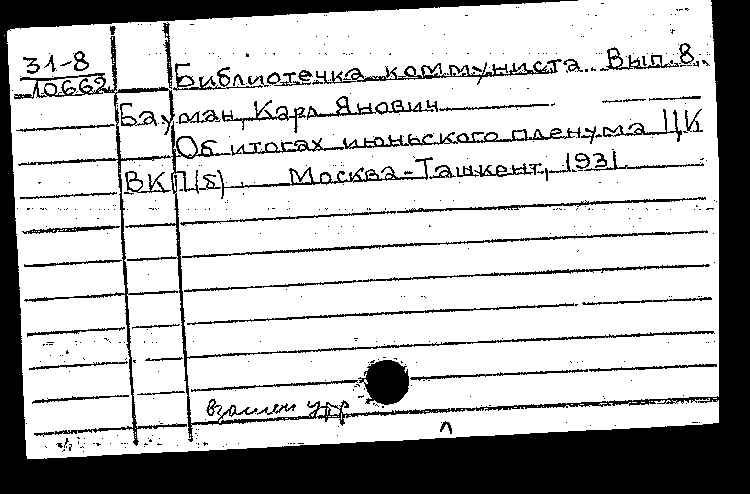 31-8
10662
Библиотечка коммуниста. Вып. 8.
Бауман, Карл Янович
Об итогах июньского пленума ЦК
ВКП(б). Москва-Ташкент, 1931.
взамен